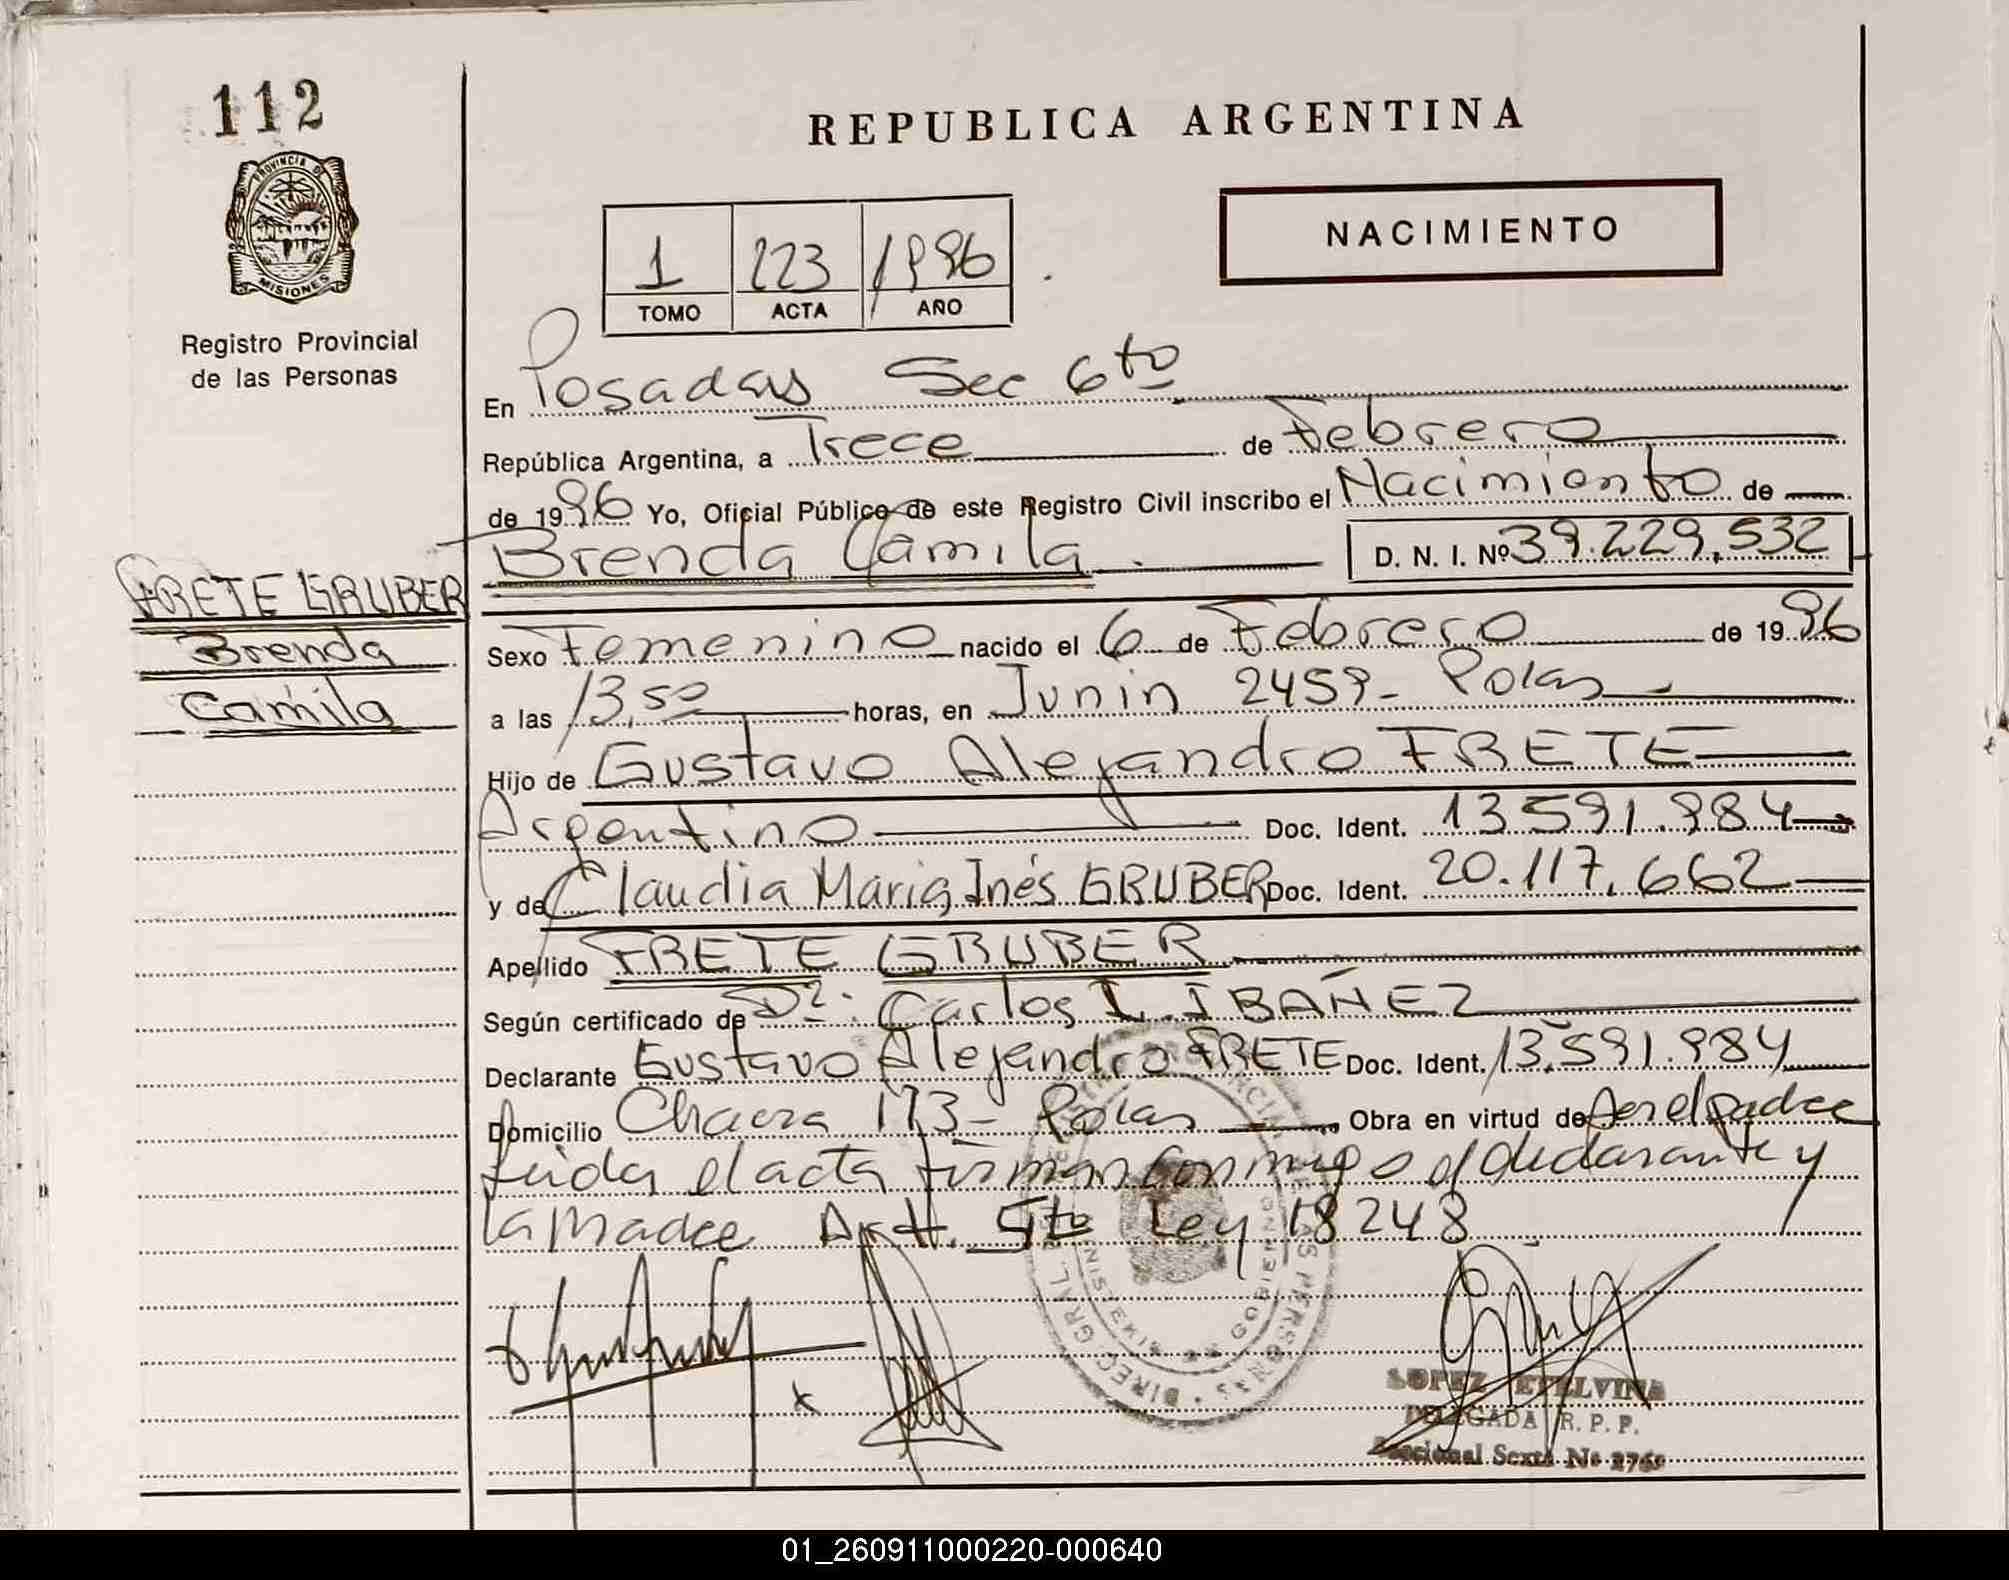 112
PROVINCIA DE
MISIONES
Registro Provincial
de las Personas
FRETE GRUBER
Brenda
Camila
REPUBLICA ARGENTINA
NACIMIENTO
1 223 1996
TOMO ACTA AÑO
En Posadas Sec 6to
República Argentina, a Trece de Febrero
de 1996 Yo, Oficial Público de este Registro Civil inscribo el Nacimiento de
Brenda Camila D. N. I. Nº 39.229.532
Sexo Femenino nacido el 6 de Febrero de 1996
a las 13,50 horas, en Junin 2459 - Pdas
Hijo de Gustavo Alejandro FRETE
Argentino Doc. Ident. 13.591.984
y de Claudia Maria Inés GRUBER Doc. Ident. 20.117.662
Apellido FRETE GRUBER
Según certificado de Dr. Carlos I. IBAÑEZ
Declarante Gustavo Alejandro FRETE Doc. Ident. 13.591.984
Domicilio Chacra 173 - Pdas Obra en virtud de ser el padre
Leida el acta firman conmigo el declarante y
la madre Art. 5to Ley 18248
GOBIERNO
MISIONES
LOPEZ ETELVINA
DELEGADA R. P. P.
Seccional Sexta Nº 2769
01_260911000220-000640